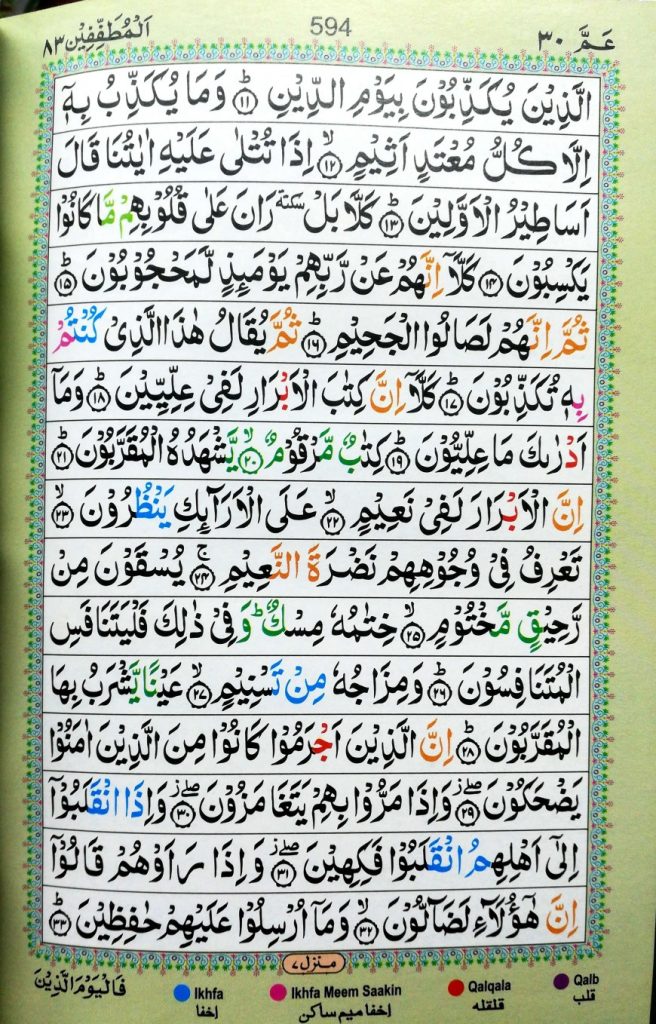 عَـمَّ ٣٠
594
اَلْمُطَفِّفِيْن ٨٣
الَّذِيْنَ يُكَذِّبُوْنَ بِيَوْمِ الدِّيْنِ ؕ﴿۱۱﴾ وَمَا يُكَذِّبُ بِهٖۤ
اِلَّا كُلُّ مُعْتَدٍ اَثِيْمٍ ۙ﴿۱۲﴾ اِذَا تُتْلٰى عَلَيْهِ اٰيٰتُنَا قَالَ
اَسَاطِيْرُ الْاَوَّلِيْنَ ؕ﴿۱۳﴾ كَلَّا بَلْ ٚ سكتة رَانَ عَلٰى قُلُوْبِهِمْ مَّا كَانُوْا
يَكْسِبُوْنَ ﴿۱۴﴾ كَلَّاۤ اِنَّهُمْ عَنْ رَّبِّهِمْ يَوْمَىِٕذٍ لَّمَحْجُوْبُوْنَ ؕ﴿۱۵﴾
ثُمَّ اِنَّهُمْ لَصَالُوا الْجَحِيْمِ ؕ﴿۱۶﴾ ثُمَّ يُقَالُ هٰذَا الَّذِيْ كُنْتُمْ
بِهٖ تُكَذِّبُوْنَ ؕ﴿۱۷﴾ كَلَّاۤ اِنَّ كِتٰبَ الْاَبْرَارِ لَفِيْ عِلِّيِّيْنَ ؕ﴿۱۸﴾ وَمَاۤ
اَدْرٰىكَ مَا عِلِّيُّوْنَ ؕ﴿۱۹﴾ كِتٰبٌ مَّرْقُوْمٌ ۙ﴿۲۰﴾ يَّشْهَدُهُ الْمُقَرَّبُوْنَ ؕ﴿۲۱﴾
اِنَّ الْاَبْرَارَ لَفِيْ نَعِيْمٍ ۙ﴿۲۲﴾ عَلَى الْاَرَآىِٕكِ يَنْظُرُوْنَ ۙ﴿۲۳﴾
تَعْرِفُ فِيْ وُجُوْهِهِمْ نَضْرَةَ النَّعِيْمِ ۚ﴿۲۴﴾ يُسْقَوْنَ مِنْ
رَّحِيْقٍ مَّخْتُوْمٍ ۙ﴿۲۵﴾ خِتٰمُهٗ مِسْكٌ ؕ وَفِيْ ذٰلِكَ فَلْيَتَنَافَسِ
الْمُتَنَافِسُوْنَ ؕ﴿۲۶﴾ وَمِزَاجُهٗ مِنْ تَسْنِيْمٍ ۙ﴿۲۷﴾ عَيْنًا يَّشْرَبُ بِهَا
الْمُقَرَّبُوْنَ ؕ﴿۲۸﴾ اِنَّ الَّذِيْنَ اَجْرَمُوْا كَانُوْا مِنَ الَّذِيْنَ اٰمَنُوْا
يَضْحَكُوْنَ ؗۖ﴿۲۹﴾ وَاِذَا مَرُّوْا بِهِمْ يَتَغَامَزُوْنَ ؗۖ﴿۳۰﴾ وَاِذَا انْقَلَبُوْۤا
اِلٰۤى اَهْلِهِمُ انْقَلَبُوْا فَكِهِيْنَ ؗۖ﴿۳۱﴾ وَاِذَا رَاَوْهُمْ قَالُوْۤا
اِنَّ هٰۤؤُلَآءِ لَضَآلُّوْنَ ۙ﴿۳۲﴾ وَمَاۤ اُرْسِلُوْا عَلَيْهِمْ حٰفِظِيْنَ ؕ﴿۳۳﴾
منزل ٧
فَالْيَوْمَ الَّذِيْنَ
Ikhfa
إخفا
Ikhfa Meem Saakin
إخفا ميم ساكن
Qalqala
قلقله
Qalb
قلب